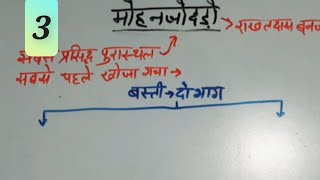 3
मोहनजोदड़ो → राखलदास बनर्
सबसे प्रसिद्ध पुरास्थल
सबसे पहले खोजा गया →
बस्ती → दो भाग